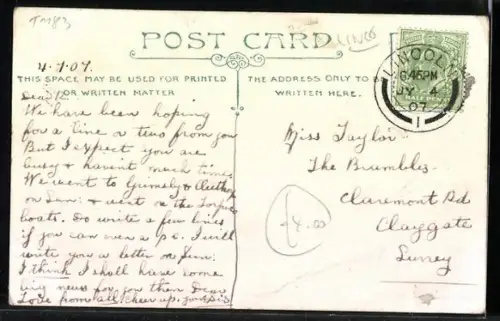 TM83
POST CARD
LINCO
4.7.07.
THIS SPACE MAY BE USED FOR PRINTED
OR WRITTEN MATTER
THE ADDRESS ONLY TO BE
WRITTEN HERE.
LINCOLN
6.45PM
JY 4
07
1
HALF PENNY
Dear
We have been hoping
for a line or two from you
But I expect you are
busy & havent much time
We went to Grimsby &
on Sun: & went on the Torpedo
boats. Do write a few lines
if you can even a p.c. I will
write you a letter on Sun:
I think I shall have some
big news for you then Dear
Love from all, cheer up, your sis
Miss Taylor
The Brambles
Claremont Rd
Claygate
Surrey
£4.00